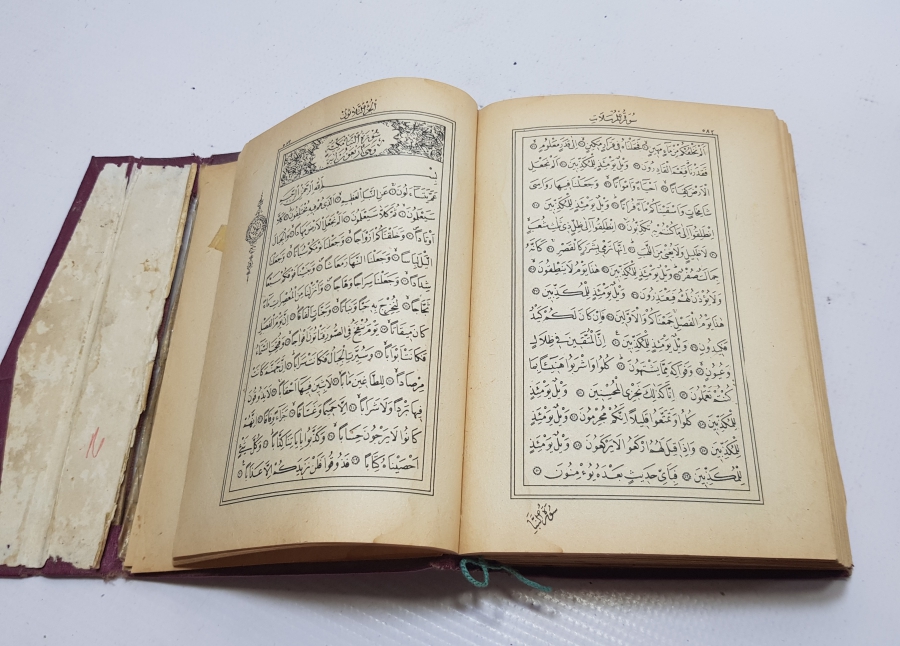 سُورَةُ الْمُرْسَلَاتِ
اَلَمْ نَخْلُقْكُمْ مِنْ مَاءٍ مَهِينٍ ۝ فَجَعَلْنَاهُ فِي قَرَارٍ مَكِينٍ ۝ اِلٰى قَدَرٍ مَعْلُومٍ ۝
فَقَدَرْنَا فَنِعْمَ الْقَادِرُونَ ۝ وَيْلٌ يَوْمَئِذٍ لِلْمُكَذِّبِينَ ۝ اَلَمْ نَجْعَلِ
الْاَرْضَ كِفَاتًا ۝ اَحْيَاءً وَاَمْوَاتًا ۝ وَجَعَلْنَا فِيهَا رَوَاسِيَ
شَامِخَاتٍ وَاَسْقَيْنَاكُمْ مَاءً فُرَاتًا ۝ وَيْلٌ يَوْمَئِذٍ لِلْمُكَذِّبِينَ ۝
اِنْطَلِقُوا اِلٰى مَا كُنْتُمْ بِهِ تُكَذِّبُونَ ۝ اِنْطَلِقُوا اِلٰى ظِلٍّ ذِي ثَلٰثِ شُعَبٍ ۝
لَا ظَلِيلٍ وَلَا يُغْنِي مِنَ اللَّهَبِ ۝ اِنَّهَا تَرْمِي بِشَرَرٍ كَالْقَصْرِ ۝ كَاَنَّهُ
جِمَالَتٌ صُفْرٌ ۝ وَيْلٌ يَوْمَئِذٍ لِلْمُكَذِّبِينَ ۝ هٰذَا يَوْمُ لَا يَنْطِقُونَ ۝
وَلَا يُؤْذَنُ لَهُمْ فَيَعْتَذِرُونَ ۝ وَيْلٌ يَوْمَئِذٍ لِلْمُكَذِّبِينَ ۝
هٰذَا يَوْمُ الْفَصْلِ جَمَعْنَاكُمْ وَالْاَوَّلِينَ ۝ فَاِنْ كَانَ لَكُمْ كَيْدٌ
فَكِيدُونِ ۝ وَيْلٌ يَوْمَئِذٍ لِلْمُكَذِّبِينَ ۝ اِنَّ الْمُتَّقِينَ فِي ظِلَالٍ
وَعُيُونٍ ۝ وَفَوَاكِهَ مِمَّا يَشْتَهُونَ ۝ كُلُوا وَاشْرَبُوا هَنِيئًا بِمَا
كُنْتُمْ تَعْمَلُونَ ۝ اِنَّا كَذٰلِكَ نَجْزِي الْمُحْسِنِينَ ۝ وَيْلٌ يَوْمَئِذٍ
لِلْمُكَذِّبِينَ ۝ كُلُوا وَتَمَتَّعُوا قَلِيلًا اِنَّكُمْ مُجْرِمُونَ ۝ وَيْلٌ يَوْمَئِذٍ
لِلْمُكَذِّبِينَ ۝ وَاِذَا قِيلَ لَهُمُ ارْكَعُوا لَا يَرْكَعُونَ ۝ وَيْلٌ يَوْمَئِذٍ
لِلْمُكَذِّبِينَ ۝ فَبِاَيِّ حَدِيثٍ بَعْدَهُ يُؤْمِنُونَ ۝
سُورَةُ النَّبَأِ
اَلْجُزْءُ الثَّلَاثُونَ
بِسْمِ اللّٰهِ الرَّحْمٰنِ الرَّحِيمِ
عَمَّ يَتَسَاءَلُونَ ۝ عَنِ النَّبَاِ الْعَظِيمِ ۝ اَلَّذِي هُمْ فِيهِ مُخْتَلِفُونَ ۝ كَلَّا
سَيَعْلَمُونَ ۝ ثُمَّ كَلَّا سَيَعْلَمُونَ ۝ اَلَمْ نَجْعَلِ الْاَرْضَ مِهَادًا ۝ وَالْجِبَالَ
اَوْتَادًا ۝ وَخَلَقْنَاكُمْ اَزْوَاجًا ۝ وَجَعَلْنَا نَوْمَكُمْ سُبَاتًا ۝ وَجَعَلْنَا
الَّيْلَ لِبَاسًا ۝ وَجَعَلْنَا النَّهَارَ مَعَاشًا ۝ وَبَنَيْنَا فَوْقَكُمْ سَبْعًا
شِدَادًا ۝ وَجَعَلْنَا سِرَاجًا وَهَّاجًا ۝ وَاَنْزَلْنَا مِنَ الْمُعْصِرَاتِ مَاءً
ثَجَّاجًا ۝ لِنُخْرِجَ بِهِ حَبًّا وَنَبَاتًا ۝ وَجَنَّاتٍ اَلْفَافًا ۝ اِنَّ يَوْمَ الْفَصْلِ
كَانَ مِيقَاتًا ۝ يَوْمَ يُنْفَخُ فِي الصُّورِ فَتَأْتُونَ اَفْوَاجًا ۝ وَفُتِحَتِ السَّمَاءُ
فَكَانَتْ اَبْوَابًا ۝ وَسُيِّرَتِ الْجِبَالُ فَكَانَتْ سَرَابًا ۝ اِنَّ جَهَنَّمَ كَانَتْ
مِرْصَادًا ۝ لِلطَّاغِينَ مَاٰبًا ۝ لَابِثِينَ فِيهَا اَحْقَابًا ۝ لَا يَذُوقُونَ
فِيهَا بَرْدًا وَلَا شَرَابًا ۝ اِلَّا حَمِيمًا وَغَسَّاقًا ۝ جَزَاءً وِفَاقًا ۝ اِنَّهُمْ
كَانُوا لَا يَرْجُونَ حِسَابًا ۝ وَكَذَّبُوا بِاٰيَاتِنَا كِذَّابًا ۝ وَكُلَّ شَيْءٍ
اَحْصَيْنَاهُ كِتَابًا ۝ فَذُوقُوا فَلَنْ نَزِيدَكُمْ اِلَّا عَذَابًا ۝